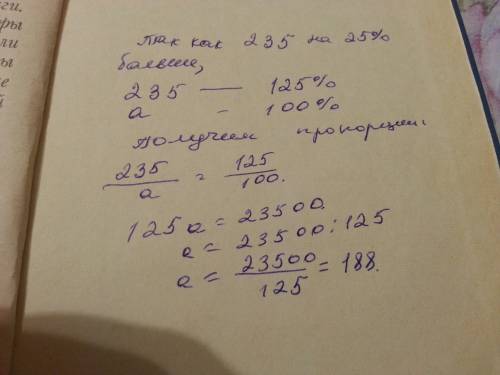 ги.
оры
ли
ы
е
й
Так как 235 на 25%
больше,
235 — 125%
а - 100%
Получим пропорции:
235/а = 125/100.
125а = 23500.
а = 23500 : 125
а = 23500/125 = 188.